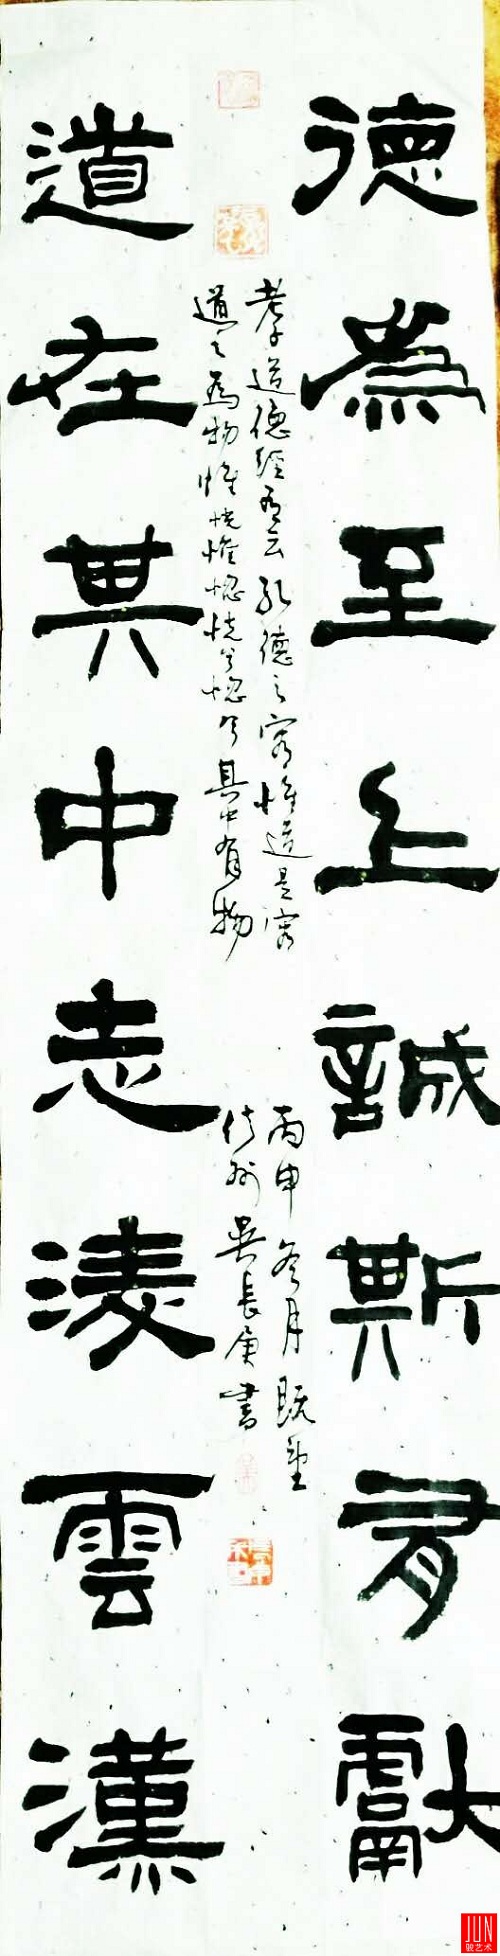 德為至上誠斯有獻
老子道德經有云孔德之容惟道是容
道之為物惟恍惟惚恍兮惚兮其中有物
丙申冬月既望
信州吳長庚書
道在其中志淩雲漢
JUN
骏艺术